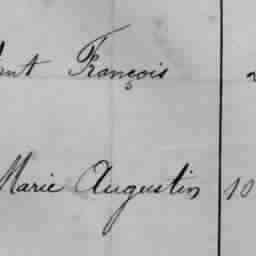 François
Marie Augustin 10